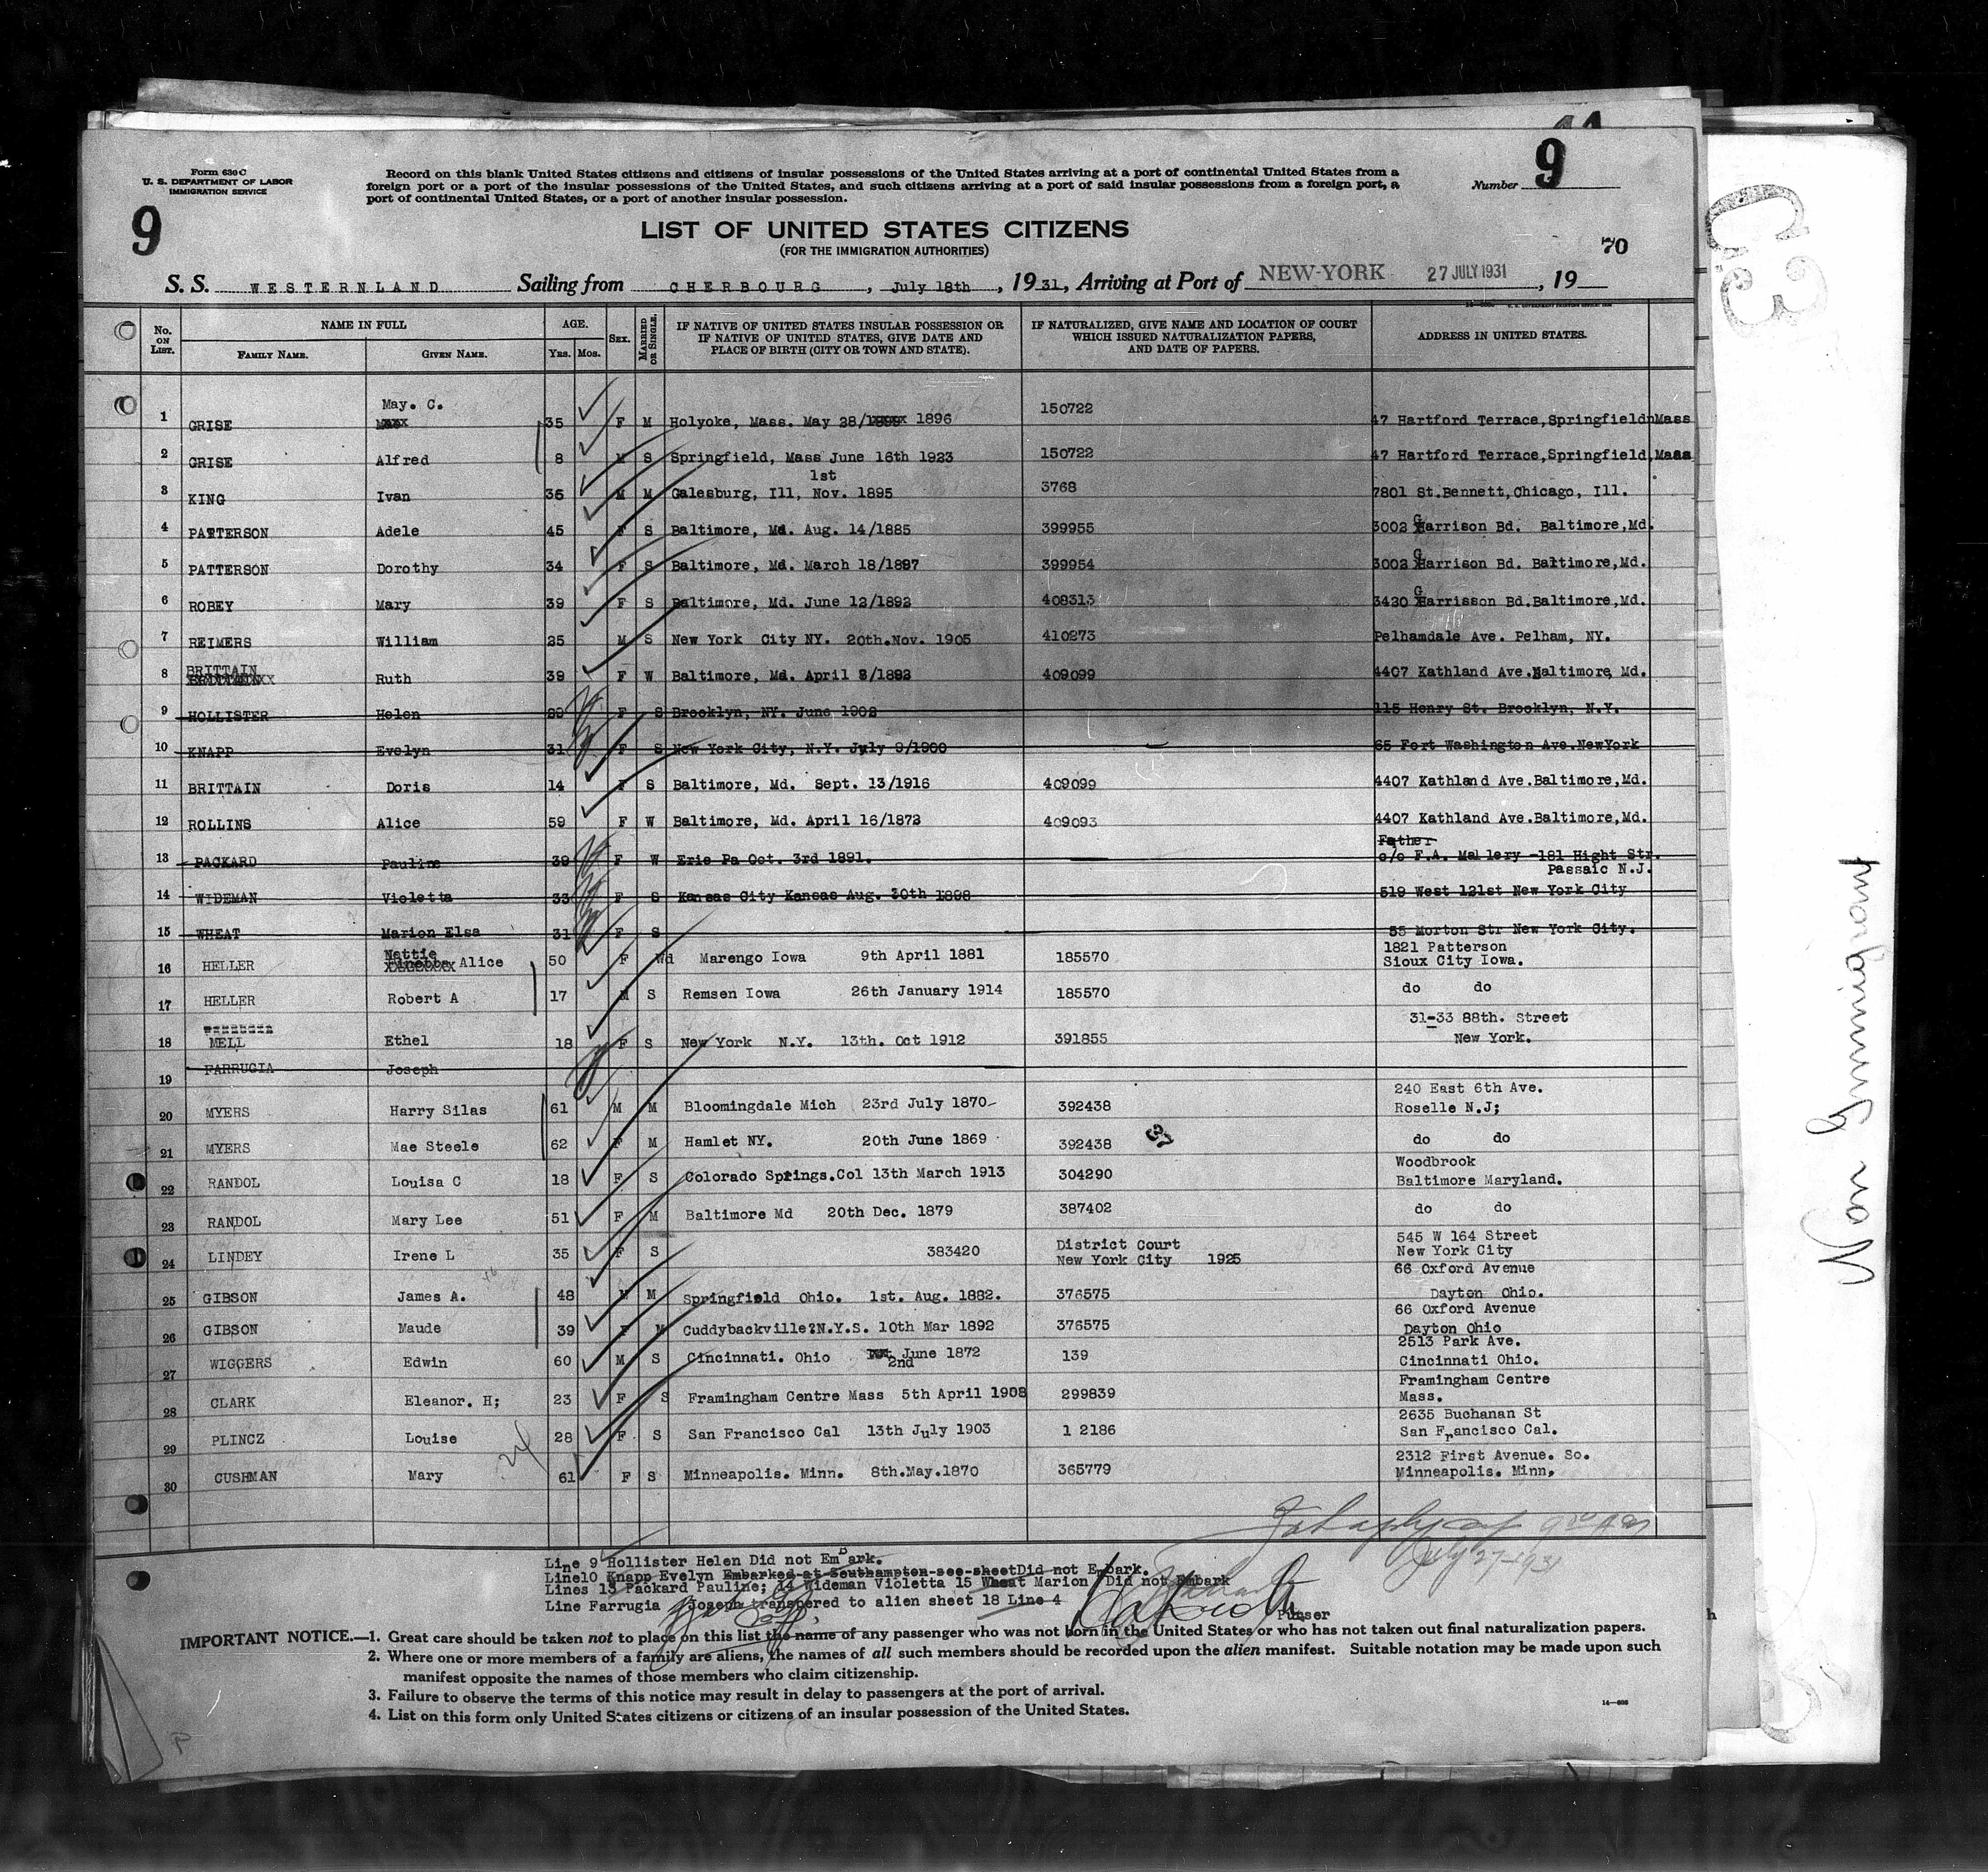 Form 630 C
U. S. DEPARTMENT OF LABOR
IMMIGRATION SERVICE
Record on this blank United States citizens and citizens of insular possessions of the United States arriving at a port of continental United States from a
foreign port or a port of the insular possessions of the United States, and such citizens arriving at a port of said insular possessions from a foreign port, a
port of continental United States, or a port of another insular possession.
Number 9
9
LIST OF UNITED STATES CITIZENS
(FOR THE IMMIGRATION AUTHORITIES)
70
S. S. WESTERNLAND Sailing from CHERBOURG, July 18th, 1931, Arriving at Port of NEW-YORK 27 JULY 1931, 19
No. ON LIST. NAME IN FULL FAMILY NAME. GIVEN NAME. AGE. Yrs. Mos. SEX. MARRIED OR SINGLE. IF NATIVE OF UNITED STATES INSULAR POSSESSION OR IF NATIVE OF UNITED STATES, GIVE DATE AND PLACE OF BIRTH (CITY OR TOWN AND STATE). IF NATURALIZED, GIVE NAME AND LOCATION OF COURT WHICH ISSUED NATURALIZATION PAPERS, AND DATE OF PAPERS. ADDRESS IN UNITED STATES.
1 GRISE May. C. 35 F M Holyoke, Mass. May 28/ 1896 150722 47 Hartford Terrace,Springfield Mass
2 GRISE Alfred 8 M S Springfield, Mass June 16th 1923 150722 47 Hartford Terrace,Springfield,Mass
3 KING Ivan 36 M M Galesburg, Ill, Nov. 1st 1895 3768 7801 St.Bennett,Chicago, Ill.
4 PATTERSON Adele 45 F S Baltimore, Md. Aug. 14/1885 399955 3002 Garrison Bd. Baltimore,Md.
5 PATTERSON Dorothy 34 F S Baltimore, Md. March 18/1897 399954 3002 Garrison Bd. Baltimore,Md.
6 ROBEY Mary 39 F S Baltimore, Md. June 12/1892 408313 3420 Garrisson Bd.Baltimore,Md.
7 REIMERS William 25 M S New York City NY. 20th.Nov. 1905 410273 Pelhamdale Ave. Pelham, NY.
8 BRITTAIN Ruth 39 F W Baltimore, Md. April 8/1892 409099 4407 Kathland Ave.Baltimore, Md.
9 HOLLISTER Helen F S Brooklyn, NY. June 1902 115 Henry St. Brooklyn, N.Y.
10 KNAPP Evelyn 31 F S New York City, N.Y. July 9/1900 65 Fort Washington Ave.NewYork
11 BRITTAIN Doris 14 F S Baltimore, Md. Sept. 13/1916 409099 4407 Kathland Ave.Baltimore,Md.
12 ROLLINS Alice 59 F W Baltimore, Md. April 16/1872 409093 4407 Kathland Ave.Baltimore,Md.
Father
13 PACKARD Pauline 39 F W Erie Pa Oct. 3rd 1891. c/o F.A. Mallery -181 Hight Str.
Passaic N.J.
14 WIDEMAN Violetta 33 F S Kansas City Kansas Aug. 30th 1898 519 West 121st New York City
15 WHEAT Marion Elsa 31 F S 55 Morton Str New York City.
16 HELLER Nettie Alice 50 F Wd Marengo Iowa 9th April 1881 185570 1821 Patterson
Sioux City Iowa.
17 HELLER Robert A 17 M S Remsen Iowa 26th January 1914 185570 do do
18 MELL Ethel 18 F S New York N.Y. 13th. Oct 1912 391855 31-33 88th. Street
New York.
19 FARRUGIA Joseph
20 MYERS Harry Silas 61 M M Bloomingdale Mich 23rd July 1870 392438 240 East 6th Ave.
Roselle N.J;
21 MYERS Mae Steele 62 F M Hamlet NY. 20th June 1869 392438 37 do do
22 RANDOL Louisa C 18 F S Colorado Springs.Col 13th March 1913 304290 Woodbrook
Baltimore Maryland.
23 RANDOL Mary Lee 51 F M Baltimore Md 20th Dec. 1879 387402 do do
24 LINDEY Irene L 35 F S 383420 District Court
New York City 1925 545 W 164 Street
New York City
25 GIBSON James A. 48 M M Springfield Ohio. 1st. Aug. 1882. 376575 66 Oxford Avenue
Dayton Ohio.
26 GIBSON Maude 39 F M Cuddybackville?N.Y.S. 10th Mar 1892 376575 66 Oxford Avenue
Dayton Ohio
27 WIGGERS Edwin 60 M S Cincinnati. Ohio 2nd June 1872 139 2513 Park Ave.
Cincinnati Ohio.
28 CLARK Eleanor. H; 23 F S Framingham Centre Mass 5th April 1908 299839 Framingham Centre
Mass.
29 PLINCZ Louise 28 F S San Francisco Cal 13th July 1903 1 2186 2635 Buchanan St
San Francisco Cal.
30 CUSHMAN Mary 61 F S Minneapolis. Minn. 8th.May.1870 365779 2312 First Avenue. So.
Minneapolis. Minn,
24
July 27-1931
Line 9 Hollister Helen Did not Embark.
Line10 Knapp Evelyn Embarked at Southampton-see-sheet Did not Embark.
Lines 13 Packard Pauline; 14 Wideman Violetta 15 Wheat Marion Did not Embark
Line Farrugia Joseph transpered to alien sheet 18 Line 4
Purser
IMPORTANT NOTICE.—1. Great care should be taken not to place on this list the name of any passenger who was not born in the United States or who has not taken out final naturalization papers.
2. Where one or more members of a family are aliens, the names of all such members should be recorded upon the alien manifest. Suitable notation may be made upon such
manifest opposite the names of those members who claim citizenship.
3. Failure to observe the terms of this notice may result in delay to passengers at the port of arrival.
4. List on this form only United States citizens or citizens of an insular possession of the United States.
14—686
Non Immigrant